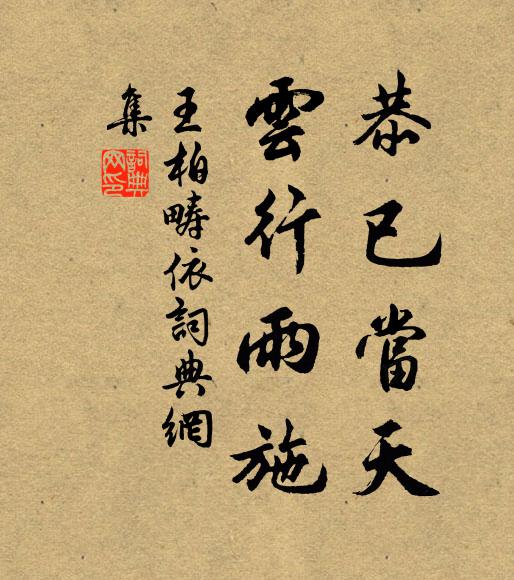 恭已當天
雲行雨施
王柏疇依詞典網
集
詞典
网印